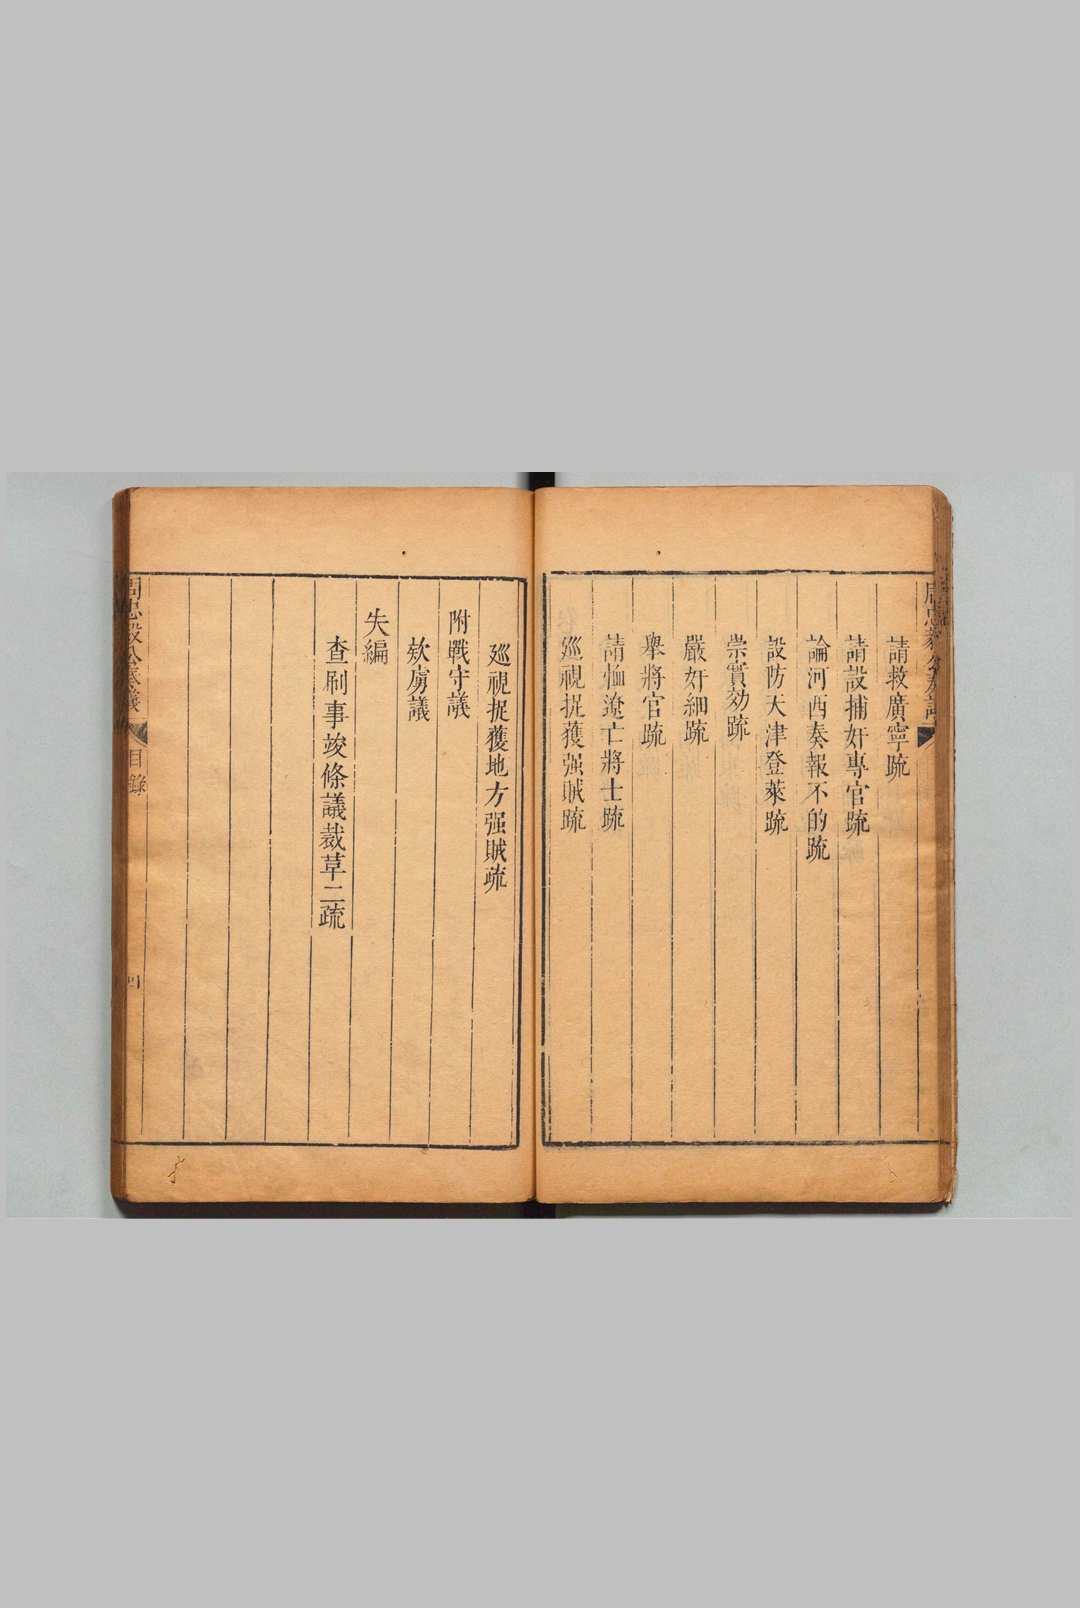 請救廣寧疏
請設捕奸專官疏
論河西奏報不的疏
設防天津登萊疏
崇實効疏
嚴奸細疏
舉將官疏
請恤遼亡將士疏
廵視捉獲强賊疏
廵視捉獲地方强賊疏
附戰守議
欵虜議
失編
查刷事竣條議裁草二疏
目錄